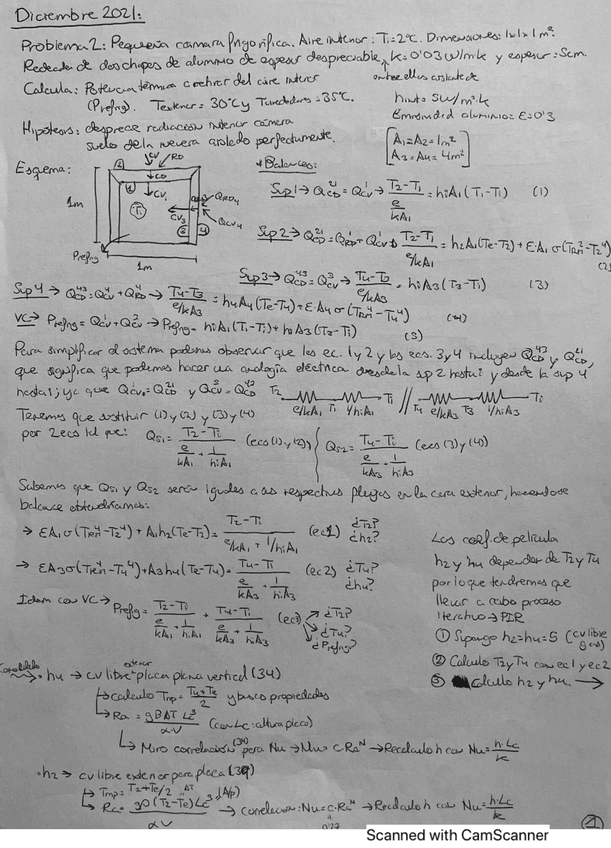 Diciembre 2021:
Problema 2: Pequeña camara frigorifica. Aire interior: Ti=2ºC. Dimensiones: 1x1x1 m².
Rodeada de dos chapas de aluminio de espesor despreciable, k=0'03 W/mk y espesor: 5cm.
entre ellas aislante de
Calcula: Potencia térmica a retirar del aire interior
(Prefrig). Texterior=30ºC y Talrededores=35ºC.
hint=5W/m²·k
Emisividad aluminio=ε=0'3
Hipótesis: desprecie radiación interior cámara
suelo de la nevera aislado perfectamente.
[A1=A2=1m²
A3=A4=4m²]
Esquema:
* Balances:
Sup1→ Q_CD^21=Q_CV^1→ (T2-T1)/(e/kA1) = hiA1(T1-Ti) (1)
Sup2→ (T2-T1)/(e/kA1) = h2A1(Te-T2)+ε·A1σ(TRN^4-T2^4) (2)
Sup3→ Q_CD^43=Q_CV^3→ = hiA3(T3-Ti) (3)
Sup4→ Q_CD^43=Q_CV^4+Q_RD^4→ (T4-T3)/(e/kA3) = h4A4(Te-T4)+ε·A4σ(TRN^4-T4^4) (4)
VC→ Prefrig=Q_CV^1+Q_CV^3→Prefrig=hiA1(T1-Ti)+hiA3(T3-Ti) (5)
1m
1m
Prefrig
Para simplificar el sistema podemos observar que las ec. 1 y 2 y las ecs. 3 y 4 incluyen Q_CD^43 y Q_CD^21,
que significa que podemos hacer una analogía eléctrica desde la sp 2 hasta i y desde la sup 4
hasta i; ya que Q_CV^1=Q_CD^21 y Q_CV^3=Q_CD^43 T2 e/kA1 T1 1/hiA1 Ti // T4 e/kA3 T3 1/hiA3 Ti
Tenemos que sustituir (1) y (2) y (3) y (4)
por 2 ecs tal que: Qs1=(T2-Ti)/(e/kA1+1/hiA1) (ecs (1) y (2)) Qs2=(T4-Ti)/(e/kA3+1/hiA3) (ecs (3) y (4))
Sabemos que Qs1 y Qs2 serán iguales a sus respectivos flujos en la cara exterior, haciendose
balance obtendríamos:
→ εA1σ(TRN^4-T2^4)+A1h2(Te-T2)=(T2-Ti)/(e/kA1+1/hiA1) (ec1) ¿T2? ¿h2?
→ εA3σ(TRN^4-T4^4)+A3h4(Te-T4)=(T4-Ti)/(e/kA3+1/hiA3) (ec2) ¿T4? ¿h4?
Idem con VC→ Prefrig=(T2-Ti)/(e/kA1+1/hiA1)+(T4-Ti)/(e/kA3+1/hiA3) (ec3) ¿T2? ¿T4? ¿Prefrig?
Los coef. de película
h2 y h4 dependen de T2 y T4
por lo que tendremos que
llevar a cabo proceso
iterativo→
① Supongo h2=h4=5 (cv libre
② Calculo T2 y T4 con ec1 y ec2
③ Calculo h2 y h4. →
• h4 → cv libre exterior placa plana vertical (34)
↳ calculo Tmp=(T4+Te)/2 y busco propiedades
↳ Ra=gβΔT Lc³/αν (con Lc: altura placa)
↳ Miro correlación para Nu→Nu=C·Ra^N→Recalculo h con Nu=h·Lc/k
• h2 → cv libre exterior para placa
↳ Tmp=T2+Te/2
↳ Ra=gβ(T2-Te)Lc³/αν (A/p) → correlación: Nu=C·Ra^N→Recalculo h con Nu=h·Lc/k
Scanned with CamScanner